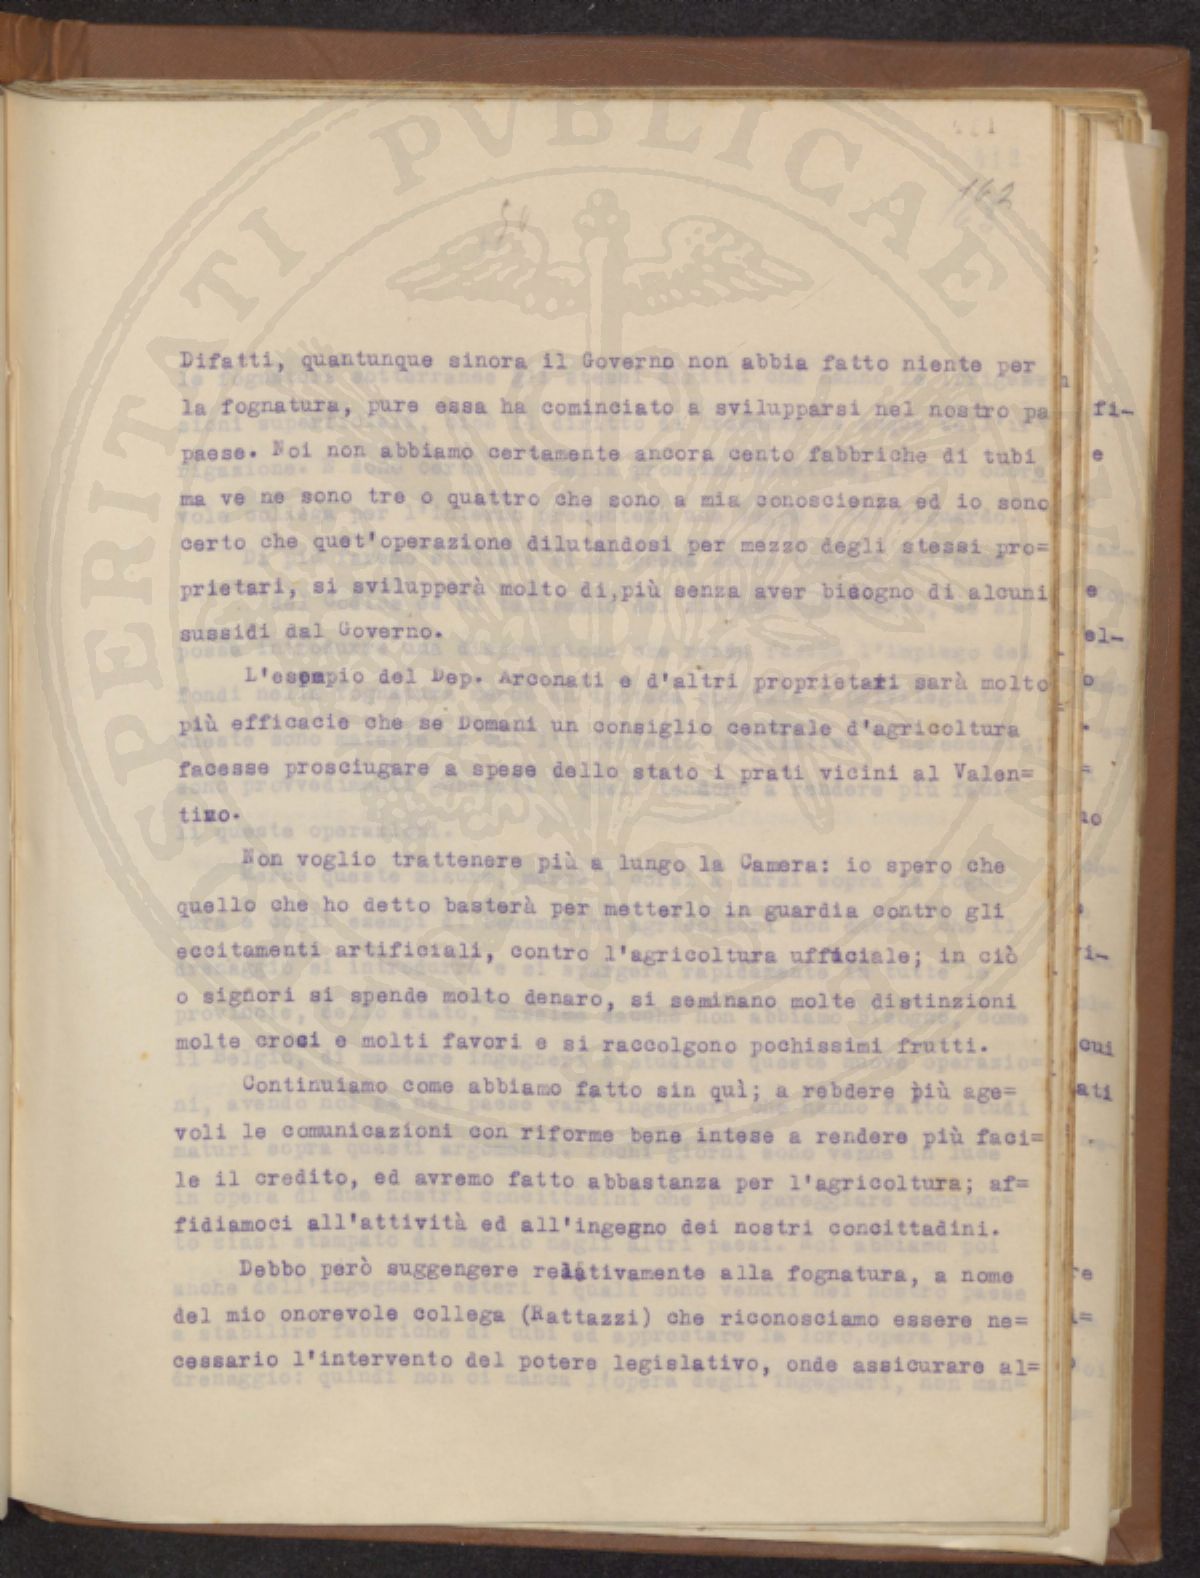 SPERITATI PVBLICAE
162
Difatti, quantunque sinora il Governo non abbia fatto niente per
la fognatura, pure essa ha cominciato a svilupparsi nel nostro pa
paese. Noi non abbiamo certamente ancora cento fabbriche di tubi
ma ve ne sono tre o quattro che sono a mia conoscienza ed io sono
certo che quet'operazione dilutandosi per mezzo degli stessi pro=
prietari, si svilupperà molto di,più senza aver bisogno di alcuni
sussidi dal Governo.
L'esempio del Dep. Arconati e d'altri proprietari sarà molto
più efficacie che se Domani un consiglio centrale d'agricoltura
facesse prosciugare a spese dello stato i prati vicini al Valen=
tino.
Non voglio trattenere più a lungo la Camera: io spero che
quello che ho detto basterà per metterlo in guardia contro gli
eccitamenti artificiali, contro l'agricoltura ufficiale; in ciò
o signori si spende molto denaro, si seminano molte distinzioni
molte croci e molti favori e si raccolgono pochissimi frutti.
Continuiamo come abbiamo fatto sin quì; a rebdere più age=
voli le comunicazioni con riforme bene intese a rendere più faci=
le il credito, ed avremo fatto abbastanza per l'agricoltura; af=
fidiamoci all'attività ed all'ingegno dei nostri concittadini.
Debbo però suggengere relativamente alla fognatura, a nome
del mio onorevole collega (Rattazzi) che riconosciamo essere ne=
cessario l'intervento del potere legislativo, onde assicurare al=